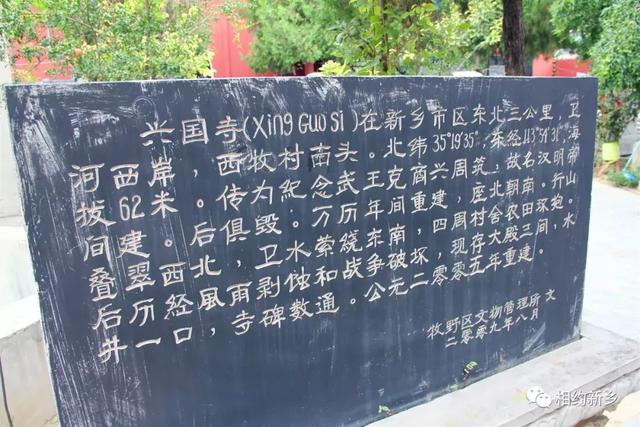 兴国寺(Xing Guo Si)在新乡市区东北三公里,卫
河西岸,西牧村南头。北纬35°19′35″,东经113°54′31″,海
拔62米。传为纪念武王克商兴周筑,故名。汉明帝
间建。后俱毁。万历年间重建,座北朝南。行山
叠翠西北,卫水萦绕东南,四周村舍农田环抱。
后历经風雨剥蚀和战争破坏,现存大殿三间,水
井一口,寺碑数通。公元二零零五年重建。
牧野区文物管理所 文
二零零九年八月
相约新乡